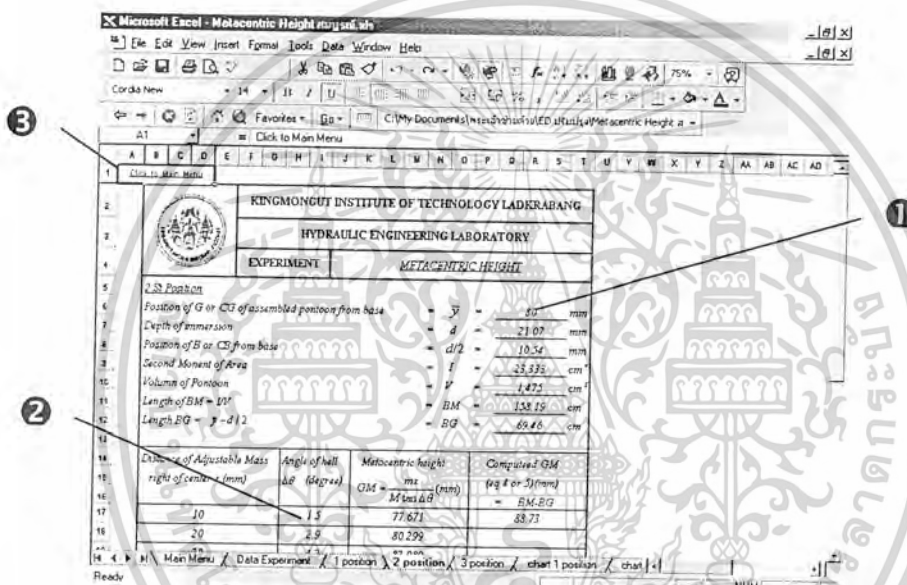 Microsoft Excel - Metacentric Height สมบูรณ์.xls
File Edit View Insert Format Tools Data Window Help
75%
Cordia New 14 B I U
Favorites Go C:\My Documents\
A1 = Click to Main Menu
A B C D E F G H I J K L M N O P Q R S T U V W X Y Z AA AB AC AD
❸
❶
1 Click to Main Menu
2 KINGMONGUT INSTITUTE OF TECHNOLOGY LADKRABANG
3 HYDRAULIC ENGINEERING LABORATORY
4 EXPERIMENT METACENTRIC HEIGHT
5 2 St Position
6 Position of G or CG of assembled pontoon from base = y̅ = 80 mm
7 Depth of immersion = d = 21.07 mm
8 Position of B or CB from base = d/2 = 10.54 mm
9 Second Monent of Area = I = 23,333 cm⁴
10 Volumn of Pontoon = V = 1,475 cm³
11 Length of BM = I/V = BM = 158.19 cm
12 Length BG = y - d/2 = BG = 69.46 cm
❷
13
14 Distance of Adjustable Mass Angle of hell Metocentric height Computued GM
15 right of center x (mm) Δθ (degree) GM = mx / M tan Δθ (mm) (eq 4 or 5) (mm)
16 = BM-BG
17 10 1.5 77.671 88.73
18 20 2.9 80.299
Main Menu / Data Experiment / 1 position \ 2 position / 3 position / chart 1 position / chart
Ready NUM